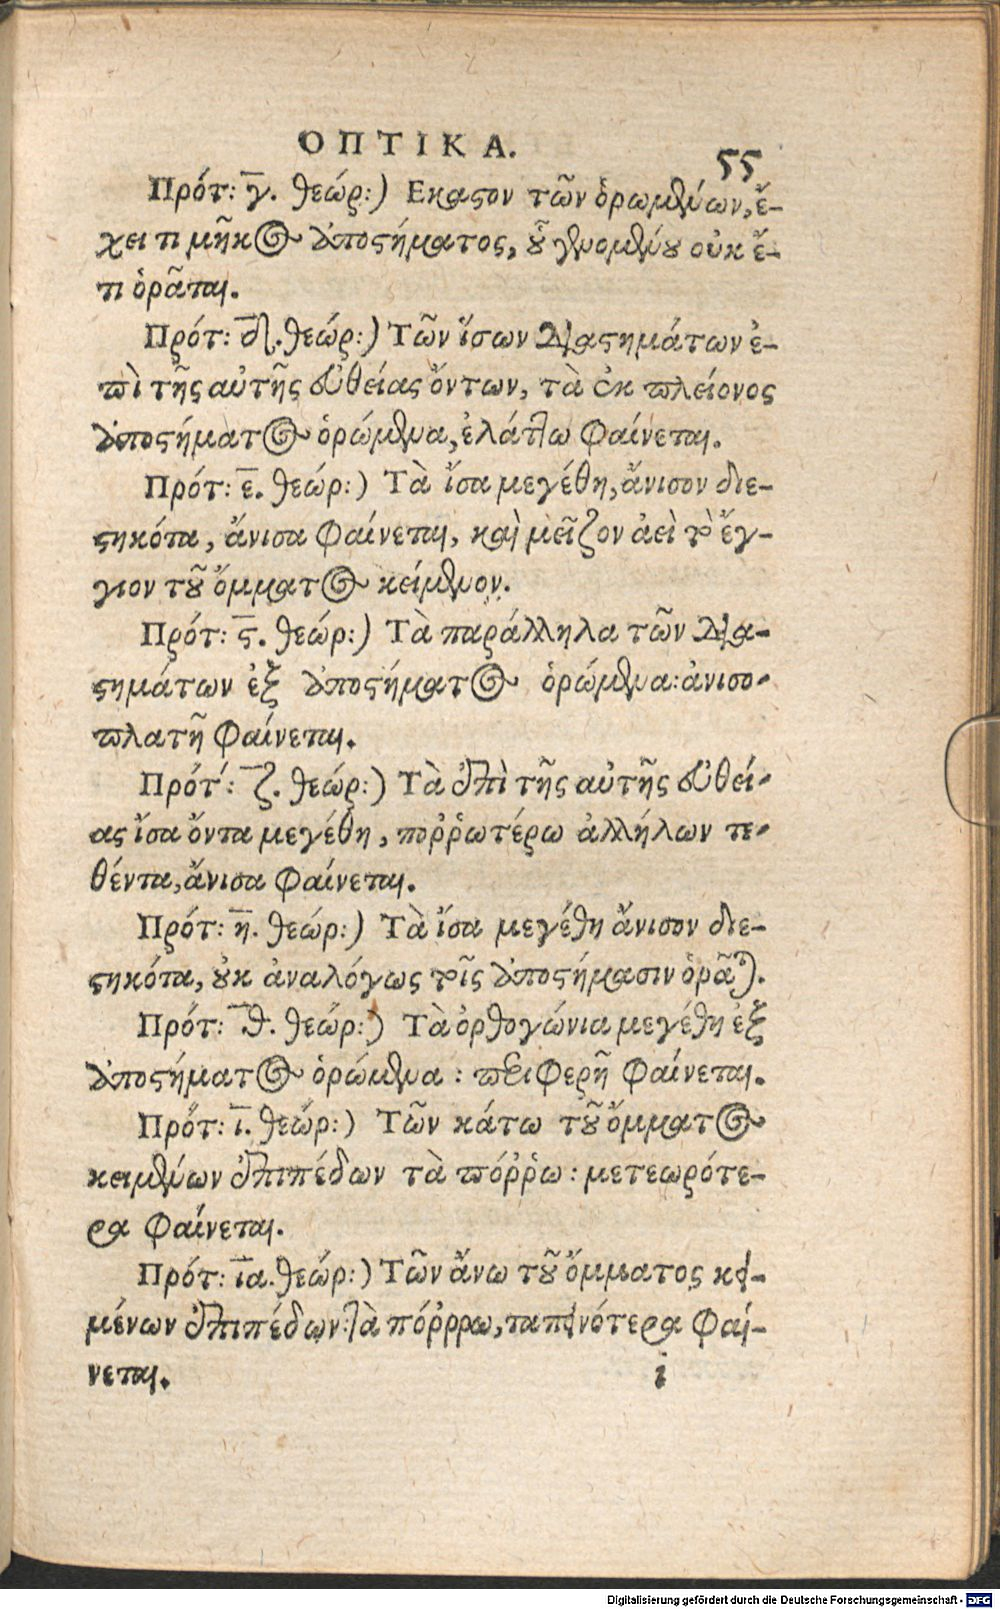 ΟΠΤΙΚΑ.
55
Πρότ: γ̅. θεώρ:) Εκαστον τῶν ὁρωμένων, ἔ-
χει τι μῆκος ἀποστήματος, οὗ γενομένου οὐκ ἔ-
τι ὁρᾶται.
Πρότ: δ̅. θεώρ:) Τῶν ἴσων διαστημάτων ἐ-
πὶ τῆς αὐτῆς εὐθείας ὄντων, τὰ ἐκ πλείονος
ἀποστήματος ὁρώμενα, ἐλάττω φαίνεται.
Πρότ: ε̅. θεώρ:) Τὰ ἴσα μεγέθη, ἄνισον διε-
στηκότα, ἄνισα φαίνεται, καὶ μεῖζον ἀεὶ τὸ ἔγ-
γιον τοῦ ὄμματος κείμενον.
Πρότ: ϛ̅. θεώρ:) Τὰ παράλληλα τῶν δια-
στημάτων ἐξ ἀποστήματος ὁρώμενα: ἀνισο-
πλατῆ φαίνεται.
Πρότ: ζ̅. θεώρ:) Τὰ ἐπὶ τῆς αὐτῆς εὐθεί-
ας ἴσα ὄντα μεγέθη, ποῤῥωτέρω ἀλλήλων τε-
θέντα, ἄνισα φαίνεται.
Πρότ: η̅. θεώρ:) Τὰ ἴσα μεγέθη ἄνισον διε-
στηκότα, οὐκ ἀναλόγως τοῖς ἀποστήμασιν ὁρᾶται.
Πρότ: θ̅. θεώρ:) Τὰ ὀρθογώνια μεγέθη ἐξ
ἀποστήματος ὁρώμενα: περιφερῆ φαίνεται.
Πρότ: ι̅. θεώρ:) Τῶν κάτω τοῦ ὄμματος
κειμένων ἐπιπέδων τὰ πόῤῥω: μετεωρότε-
ρα φαίνεται.
Πρότ: ι̅α. θεώρ:) Τῶν ἄνω τοῦ ὄμματος κει-
μένων ἐπιπέδων: τὰ πόρρρω, ταπεινότερα φαί-
νεται.
i
Digitalisierung gefördert durch die Deutsche Forschungsgemeinschaft - DFG